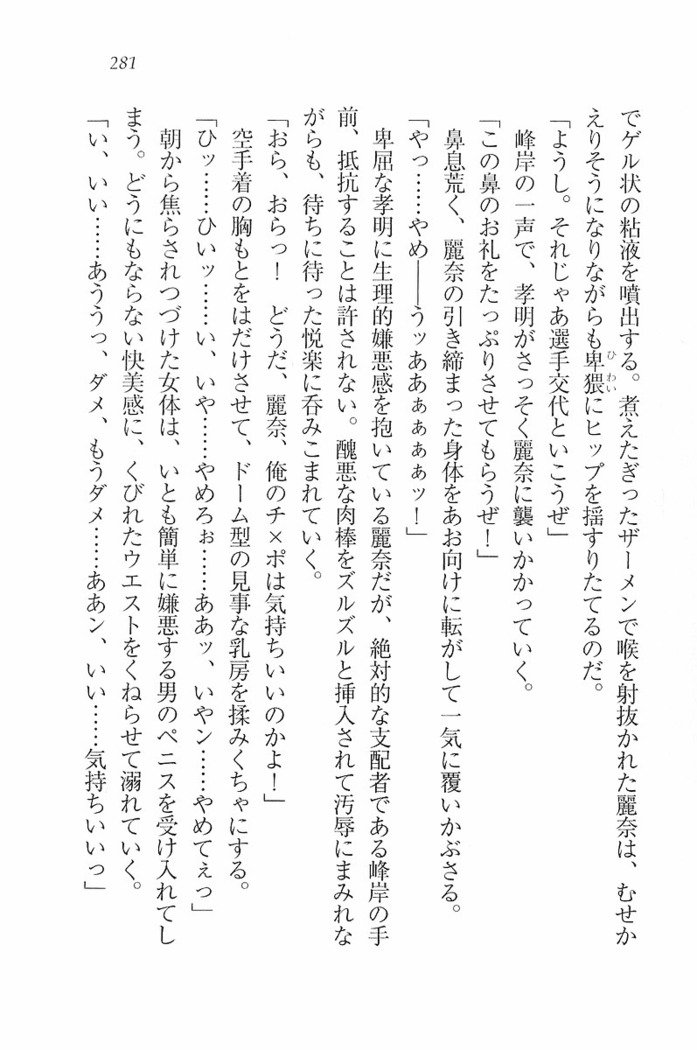 281
でゲル状の粘液を噴出する。煮えたぎったザーメンで喉を射抜かれた麗奈は、むせか
えりそうになりながらも卑猥にヒップを揺すりたてるのだ。
ひわい
「ようし。それじゃあ選手交代といこうぜ」
峰岸の一声で、孝明がさっそく麗奈に襲いかかっていく。
「この鼻のお礼をたっぷりさせてもらうぜ！」
鼻息荒く、麗奈の引き締まった身体をあお向けに転がして一気に覆いかぶさる。
「やっ……やめ――うッああぁぁぁぁッ！」
卑屈な孝明に生理的嫌悪感を抱いている麗奈だが、絶対的な支配者である峰岸の手
前、抵抗することは許されない。醜悪な肉棒をズルズルと挿入されて汚辱にまみれな
がらも、待ちに待った悦楽に呑みこまれていく。
「おら、おらっ！　どうだ、麗奈、俺のチ×ポは気持ちいいのかよ！」
空手着の胸もとをはだけさせて、ドーム型の見事な乳房を揉みくちゃにする。
「ひッ……ひいッ……い、いや……やめろぉ……ああッ、いやン……やめてぇっ」
朝から焦らされつづけた女体は、いとも簡単に嫌悪する男のペニスを受け入れてし
まう。どうにもならない快美感に、くびれたウエストをくねらせて溺れていく。
「い、いい……あううっ、ダメ、もうダメ……ああン、いい……気持ちいいっ」